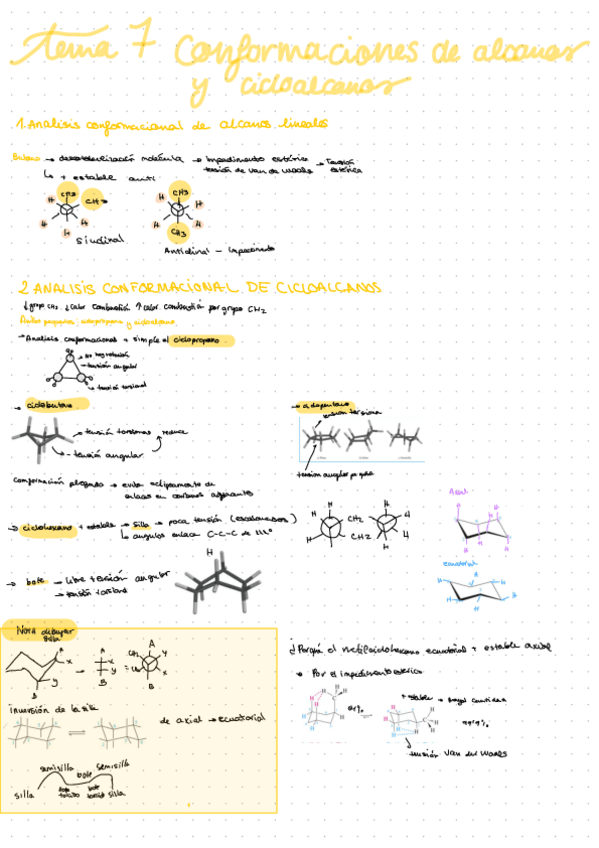 tema 7 Conformaciones de alcanos
y cicloalcanos
1. Analisis conformacional de alcanos lineales
Butano → desestabilización molécula → Impedimento estérico → Tensión
tensión de van de waals estérica
↳ + estable anti
CH3
CH3
H
H
H
H
Sinclinal
CH3
H
H
H
H
CH3
Anticlinal -
2 ANALISIS CONFORMACIONAL DE CICLOALCANOS
↓ grupo CH2 ↓ calor combustión ↑ calor combustión por grupo CH2
Anillos pequeños, ciclopropano y ciclobutano
→ Analisis conformacional + simple el ciclopropano
→ no hay rotación
→ tensión angular
→ tensión torsional
→ ciclobutano
→ tensión torsional reduce
→ tensión angular
→ ciclopentano
tension torsional
tension angular pequeña
conformación plegada → evita eclipsamiento de
enlaces en carbonos adyacentes
→ ciclohexano + estable → silla → poca tensión (escalonados)
↳ angulos enlace C-C-C de 111°
H
H
CH2
H
H
CH2
H
H
Axial
H
H
H
H
→ bote → libre tensión angular
→ tensión torsional
H
ecuatorial
H
H
H
H
H
NOTA dibujar
silla
A
x
y
B
→
A
x
y
B
=
A
CH2
y
x
B
inversión de la silla
de axial → ecuatorial
semisilla
bote
semisilla
silla
bote
torcido
bote
torcido
silla
¿Porqué el metilciclohexano ecuatorial + estable axial
• Por el impedimento estérico
+ stable → mayor cantidad
H
H
H
C
H
H
H
C
H
H
tensión Van der Waals